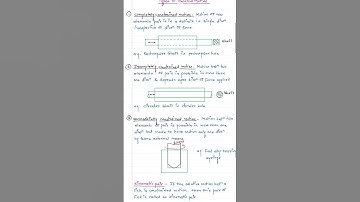 Types of Constrained Motion
① Completely constrained motion :- Motion of two
elements pair is in a definite i.e. single dirⁿ
irrespective of dirⁿ of force
Shaft
eg. Rectangular shaft in rectangular hole.
② Incompletely constrained motion:- Motion betⁿ two
elements of pair is possible in more than
one dirⁿ & depends upon dirⁿ of force applied
Shaft
eg. Circular shaft in circular hole
③ Successfully constrained motion:- Motion betⁿ two
elements of pair is possible in more than one
dirⁿ but made to have motion only one dirⁿ
by some external means
eg. Foot step bearing
Kinematic pair :- If the relative motion betⁿ a
link is constrained motion, then this pair of
link is called as kinematic pair.